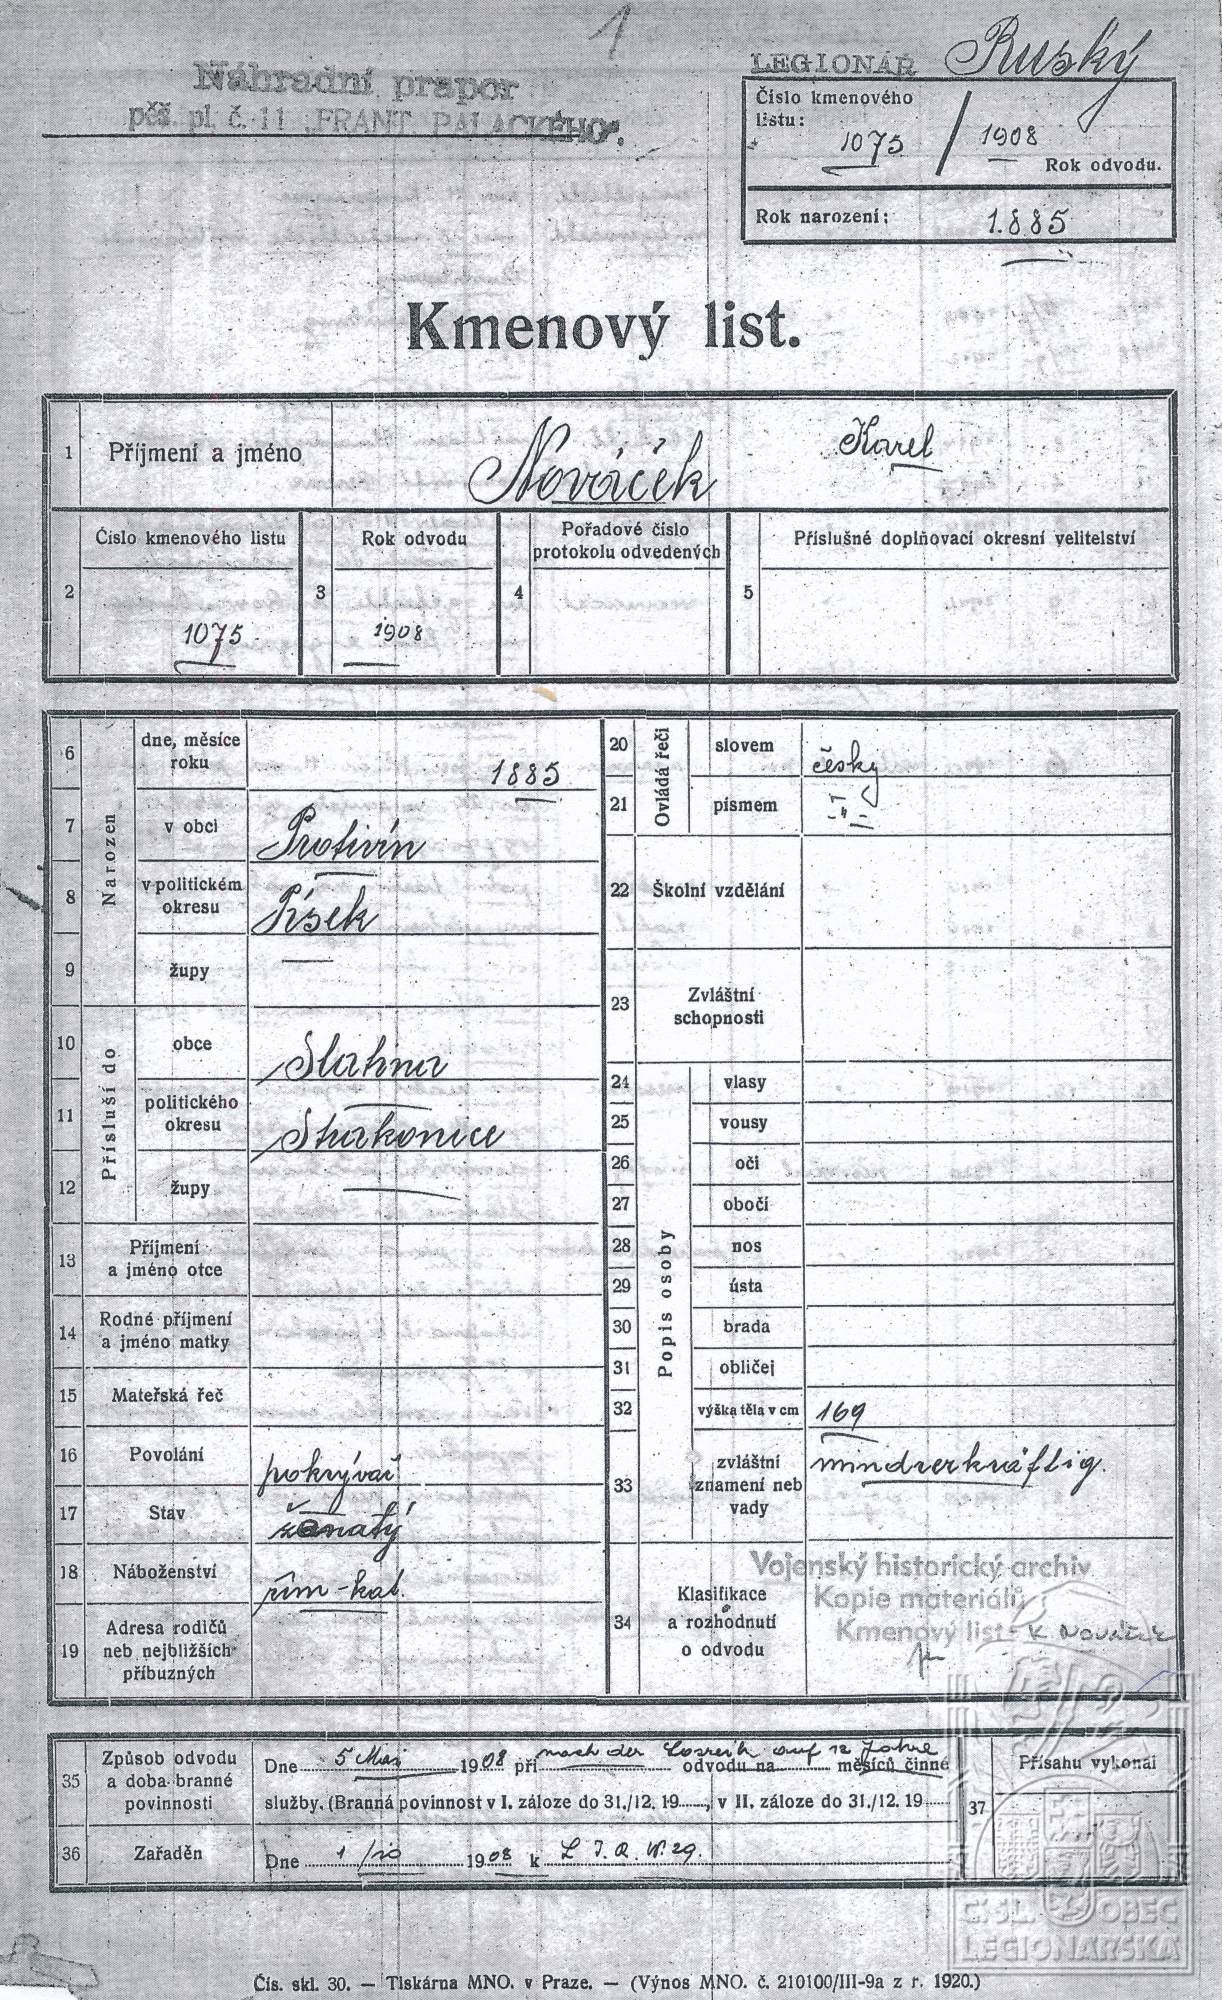 1
Náhradní prapor
pěš. pl. č. 11 „FRANT. PALACKÉHO“.
LEGIONÁŘ Ruský
Číslo kmenového
listu:
1075 / 1908
Rok odvodu.
Rok narození: 1885
Kmenový list.
1 Příjmení a jméno Nováček Karel
2 Číslo kmenového listu 1075
3 Rok odvodu 1908
4 Pořadové číslo
protokolu odvedených
5 Příslušné doplňovací okresní velitelství
Narozen
6 dne, měsíce
roku 1885
7 v obci Protivín
8 v politickém
okresu Písek
9 župy
Přísluší do
10 obce
11 politického
okresu Strakonice
12 župy
13 Příjmení
a jméno otce
14 Rodné příjmení
a jméno matky
15 Mateřská řeč
16 Povolání pokrývač
17 Stav ženatý
18 Náboženství řím-kat.
19 Adresa rodičů
neb nejbližších
příbuzných
Ovládá řeči
20 slovem česky
21 písmem -"-
22 Školní vzdělání
23 Zvláštní
schopnosti
Popis osoby
24 vlasy
25 vousy
26 oči
27 obočí
28 nos
29 ústa
30 brada
31 obličej
32 výška těla v cm 169
33 zvláštní
znamení neb
vady minderkräftig.
34 Klasifikace
a rozhodnutí
o odvodu
Vojenský historický archiv
Kopie materiálů
Kmenový list - K. Nováček
35 Způsob odvodu
a doba branné
povinnosti
Dne 5 Mai 1908 při nach der odvodu na auf 12 Jahre měsíců činné
služby. (Branná povinnost v I. záloze do 31./12. 19......, v II. záloze do 31./12. 19......
36 Zařaděn Dne 1/10 1908 k
37 Přísahu vykonal
ČSL. OBEC
LEGIONÁŘSKÁ
Čís. skl. 30. — Tiskárna MNO. v Praze. — (Výnos MNO. č. 210100/III-9a z r. 1920.)